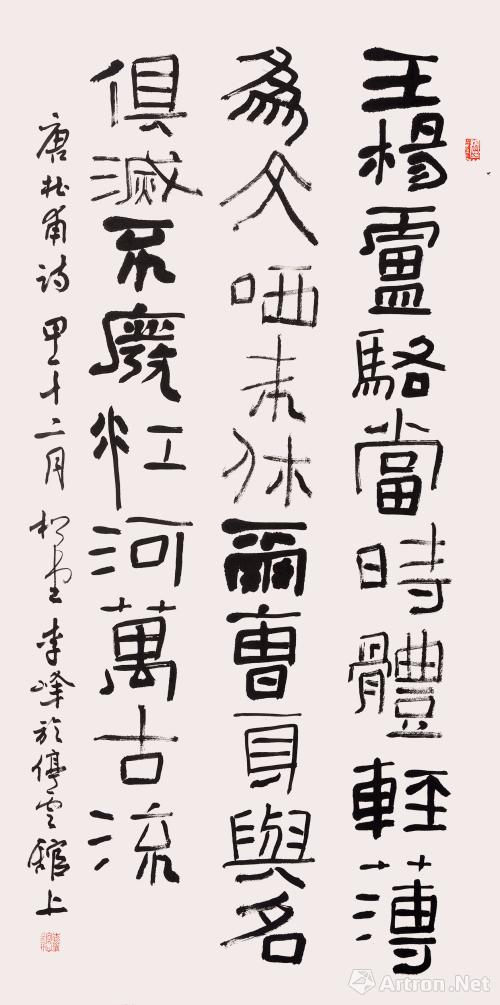 王楊盧駱當時體輕薄
爲文哂未休爾曹身與名
俱滅不廢江河萬古流
唐杜甫詩 甲午二月 李峰於停雲館上
Artron.Net